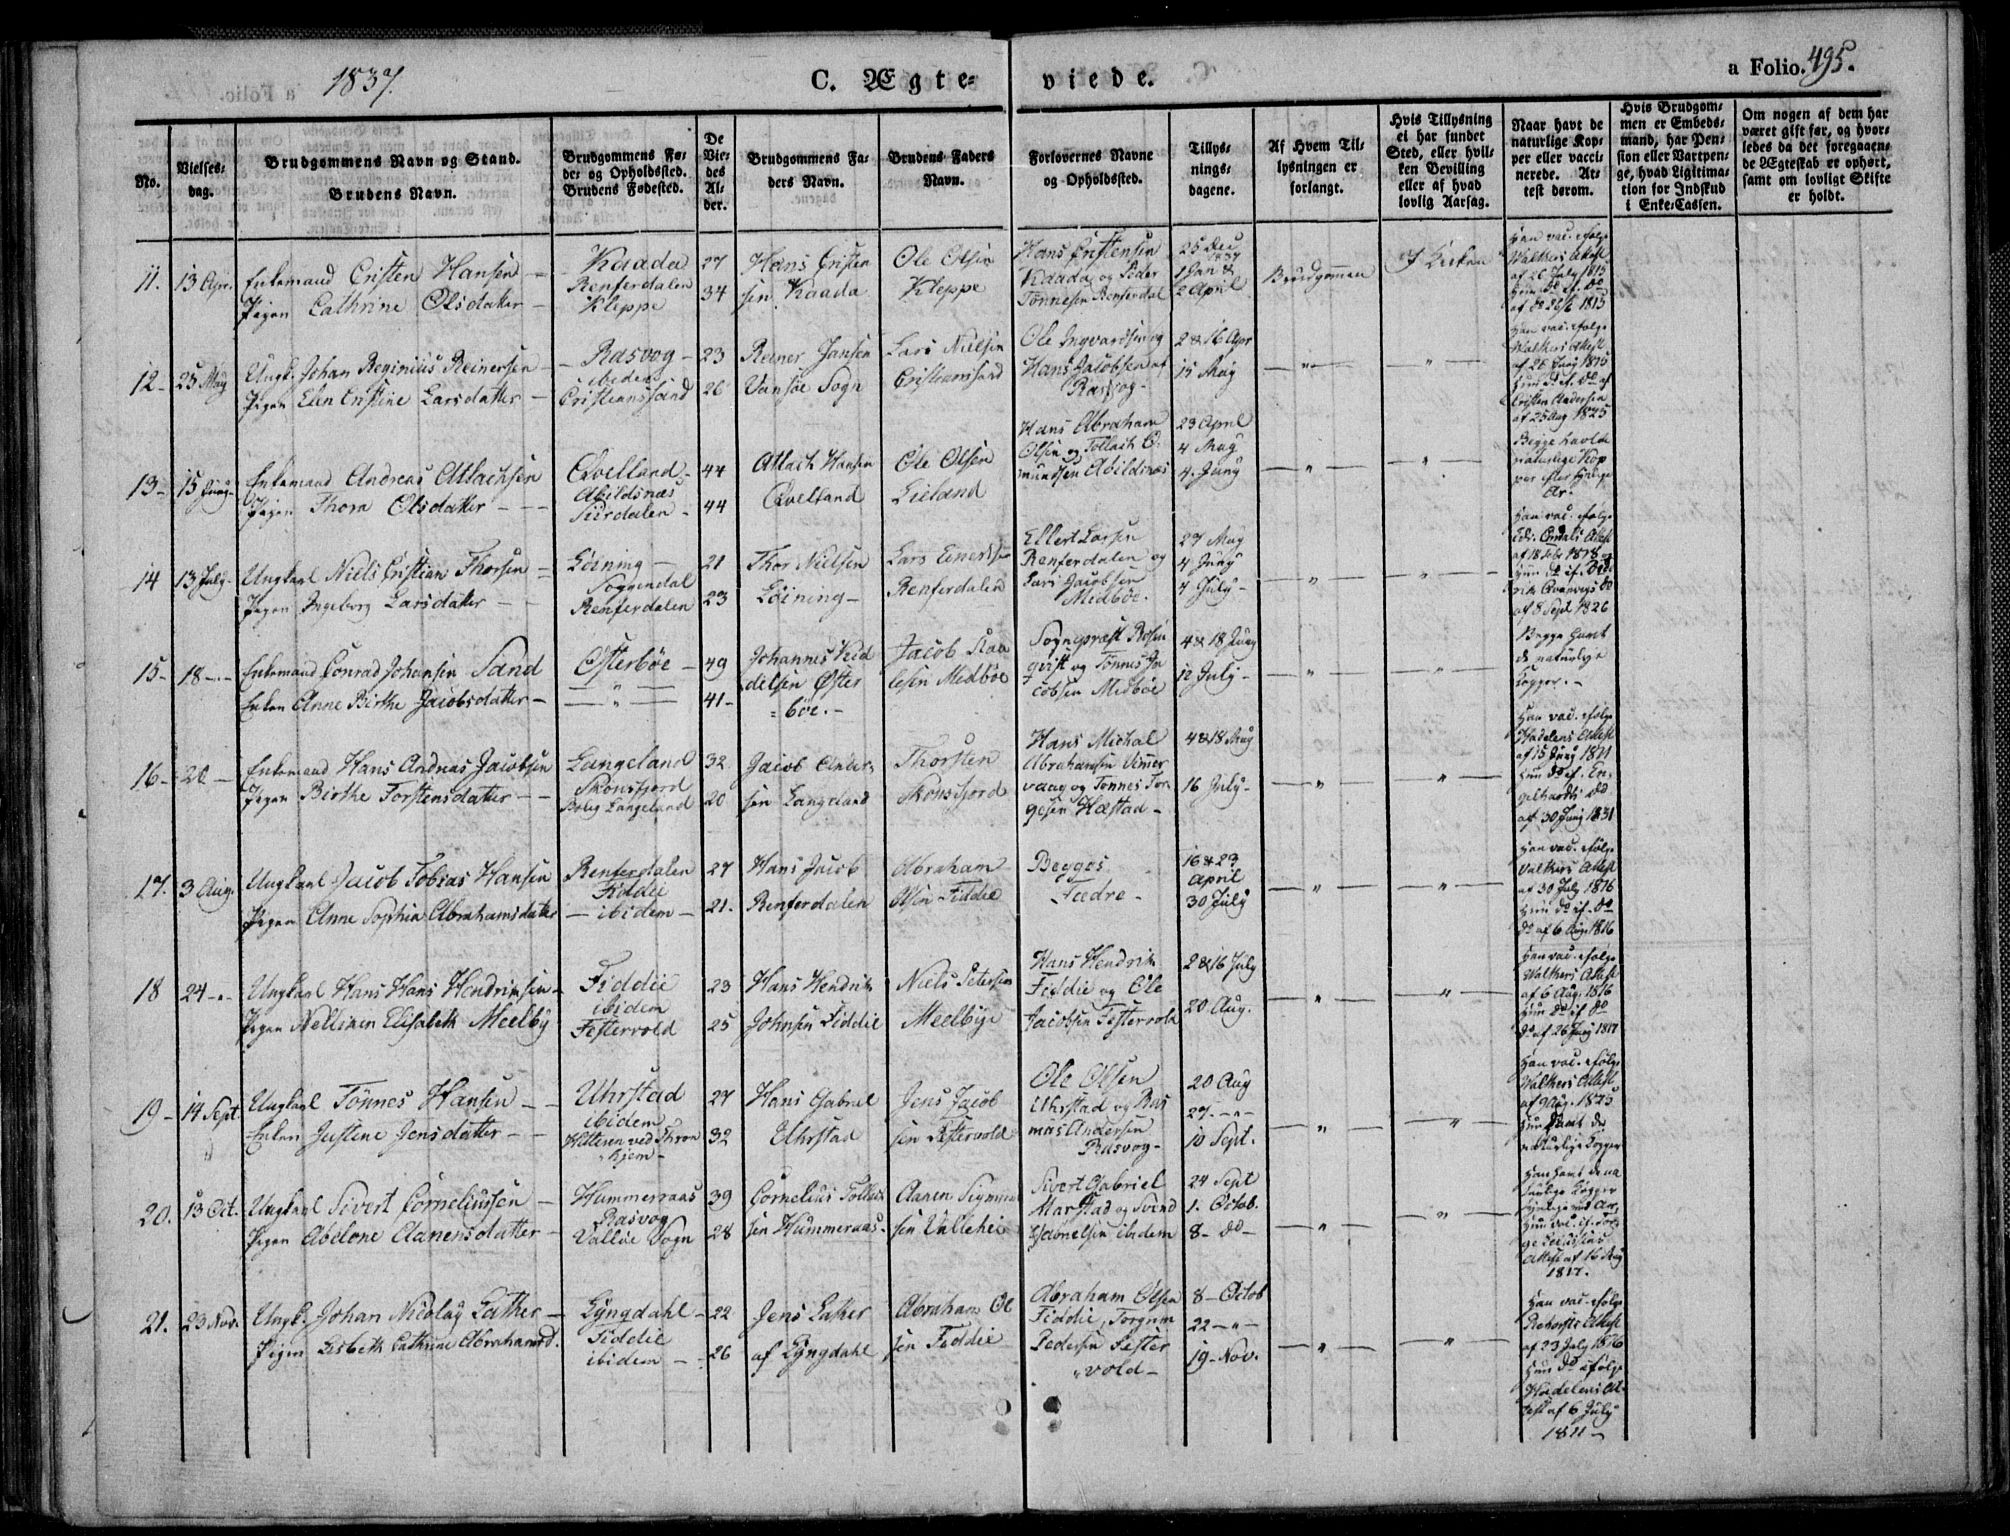 1837.
C. Ægte=
viede.
a Folio. 495.
No.
Vielses=
dag.
Brudgommens Navn og Stand.
Brudens Navn.
Brudgommens Fø=
de= og Opholdssted.
Brudens Fødested.
De
Vie=
des
Al=
der.
Brudgommens Fa=
ders Navn.
Brudens Faders
Navn.
Forlovernes Navne
og Opholdssted.
Tillys=
nings=
dagene.
Af Hvem Til=
lysningen er
forlangt.
Hvis Tillysning
ei har fundet
Sted, eller hvil=
ken Bevilling
eller af hvad
lovlig Aarsag.
Naar havt de
naturlige Kop=
per eller vacci=
nerede. At=
test derom.
Hvis Brudgom=
men er Embeds=
mand, har Pen=
sion eller Vartpen=
ge, hvad Ligitima=
tion for Indskud
i Enke=Cassen.
Om nogen af dem har
været gift før, og hvor=
ledes da det foregaaen=
de Ægteskab er ophørt,
samt om lovligt Skifte
er holdt.
11. 13 Apr.
Enkemand Cristen Hansen
Pigen Cathrine Olsdatter
Kaada
Renferdalen
Kleppe
27
34
Hans Cristen
sen Kaada
Ole Olsen
Kleppe
Hans Cristensen
Kaada og Peder
Tønnesen Renferdal
25 Dec
1 Jan &
2 April
Brudgommen
I Kirken
Han vac. efølge
Walkers Attest
af 26 July 1815
Hun do ef. do
12 - 25 May
Ungk. Johan Reginius Reinersen
Pigen Elen Cristine Larsdatter
Rasvog
ibidem
Cristianssand
23
26
Reiner Jansen
Vansøe Sogn
Lars Nielsen
Cristianssand
Ole Ingvardsen og
Hans Jacobsen af
Rasvog
2 & 16 Apr
15 May
Han vac. efølge
Walkers Attest
af 26 Juny 1815
Hun do ef. do af
Cristen Andersen
af 25 Aug 1825
13 - 15 Juny
Enkemand Andreas Atlachsen
Pigen Thora Olsdatter
Qvelland
Abildsnæs
Siirdalen
44
44
Atlach Hansen
Qvelland
Ole Olsen
Lieland
Hans Abraham
Olsen og Tollach O=
mundsen Abildsnæs
23 April
4 May
4 Juny
Begge havde
naturlige Kop
per efter sigende
Ar.
14 13 July
Ungkarl Niels Cristian Thorsen
Pigen Ingeborg Larsdatter
Løining
Soggendal
Renferdalen
21
23
Thor Nielsen
Løining
Lars Einertsen
Renferdalen
Ellert Larsen
Renferdalen og
Lars Jacobsen
Midbøe.
27 May
4 Juny
4 July
Han vac. efølge
af 8 Sept 1826
15 - 18
Enkemand Conrad Johansen Sand
Enken Anne Birthe Jacobsdatter
Østerbøe
49
41
Johannes Kid
delsen Øster
=bøe.
Jacob Staa
lesen Midbøe
Sognepræst Rosen
qvist og Tønnes Ja
cobsen Midbøe
4 & 18 Juny
12 July
Begge havt
de naturlige
Kopper.
16 - 20
Enkemand Hans Andreas Jacobsen
Pigen Birthe Torstensdatter
Langeland
Skonsfjord
Bolig Langeland
32
20
Jacob Ander=
sen Langeland
Thorsten
Skonsfjord
Hans Michal
Abrahamsen
vaag og Tønnes Tor
gesen Hæstad
4 & 18 May
16 July
Han vac. efølge
Wadelens Attest
af 15 Juny 1811
Hun do ef. En=
gelhardts do
af 30 Juny 1831
17. 3 Aug.
Ungkarl Jacob Tobias Hansen
Pigen Anne Sophia Abrahamsdatter
Renferdalen
Fiddie
ibidem
27
21
Hans Jacob
Renferdalen
Abraham
Olsen Fiddie
Begges
Fædre
16 & 29
April
30 July
Han vac. efølge
Valkers Attest
af 30 July 1816
Hun do ef. do
do af 6 Aug. 1816
18 24
Ungkarl Hans Hans Hendriksen
Pigen Nellinken Elisabeth Meelby
Fiddie
ibidem
Festervold
23
25
Hans Hendrik
Johnsen Fiddie
Niels Petersen
Meelbye
Hans Hendrik
Fiddie og Ole
Jacobsen Festervold
2 & 16 July
20 Aug.
Han vac. efølge
Walkers Attest
af 6 Aug. 1816
Hun do ef do
do af 26 Juny 1817
19 - 14 Sept
Ungkarl Tønnes Hansen
Enken Justene Jensdatter
Uhrstad
ibidem
Hitteren ved Thron
hjem
27
32
Hans Gabriel
Uhrstad
Jens Jacob
sen Festervold
Ole Olsen
Uhrstad og Ras
mus Andersen
Rasvog
20 Aug
27
10 Sept.
Han vac. efølge
Walkers Attest
Hun havt de
naturlige Kopper
20. 13 Oct.
Ungkarl Sivert Corneliussen
Pigen Abelone Aanensdatter
Hummeraas
Rasvog
Valløe Sogn
39
28
Cornelius Tollak
sen Hummeraas
Aanen Sigmund
sen Vallehei
Sivert Gabriel
Marstad og Svend
Gabrielsen ibidem
24 Sept
1. Octob.
8 - do
Han havt de na
turlige Kopper
synlige ved Ar.
Attest af 16 Aug
1817.
21. 23 Nov.
Ungk. Johan Nicolay Lather
Pigen Lisbeth Cathrine Abrahamsd.
Lyngdahl
Fiddie
ibidem
22
26
Jens Lather
af Lyngdahl
Abraham Ol
sen Fiddie
Abraham Olsen
Fiddie, Torgrim
Pedersen Fester
vold
8 - Octob
22
19 - Nov.
Han vac. efølge
Attest
af 23 July 1816
Hun do efølge
Wadelens At=
test af 6 July
1811